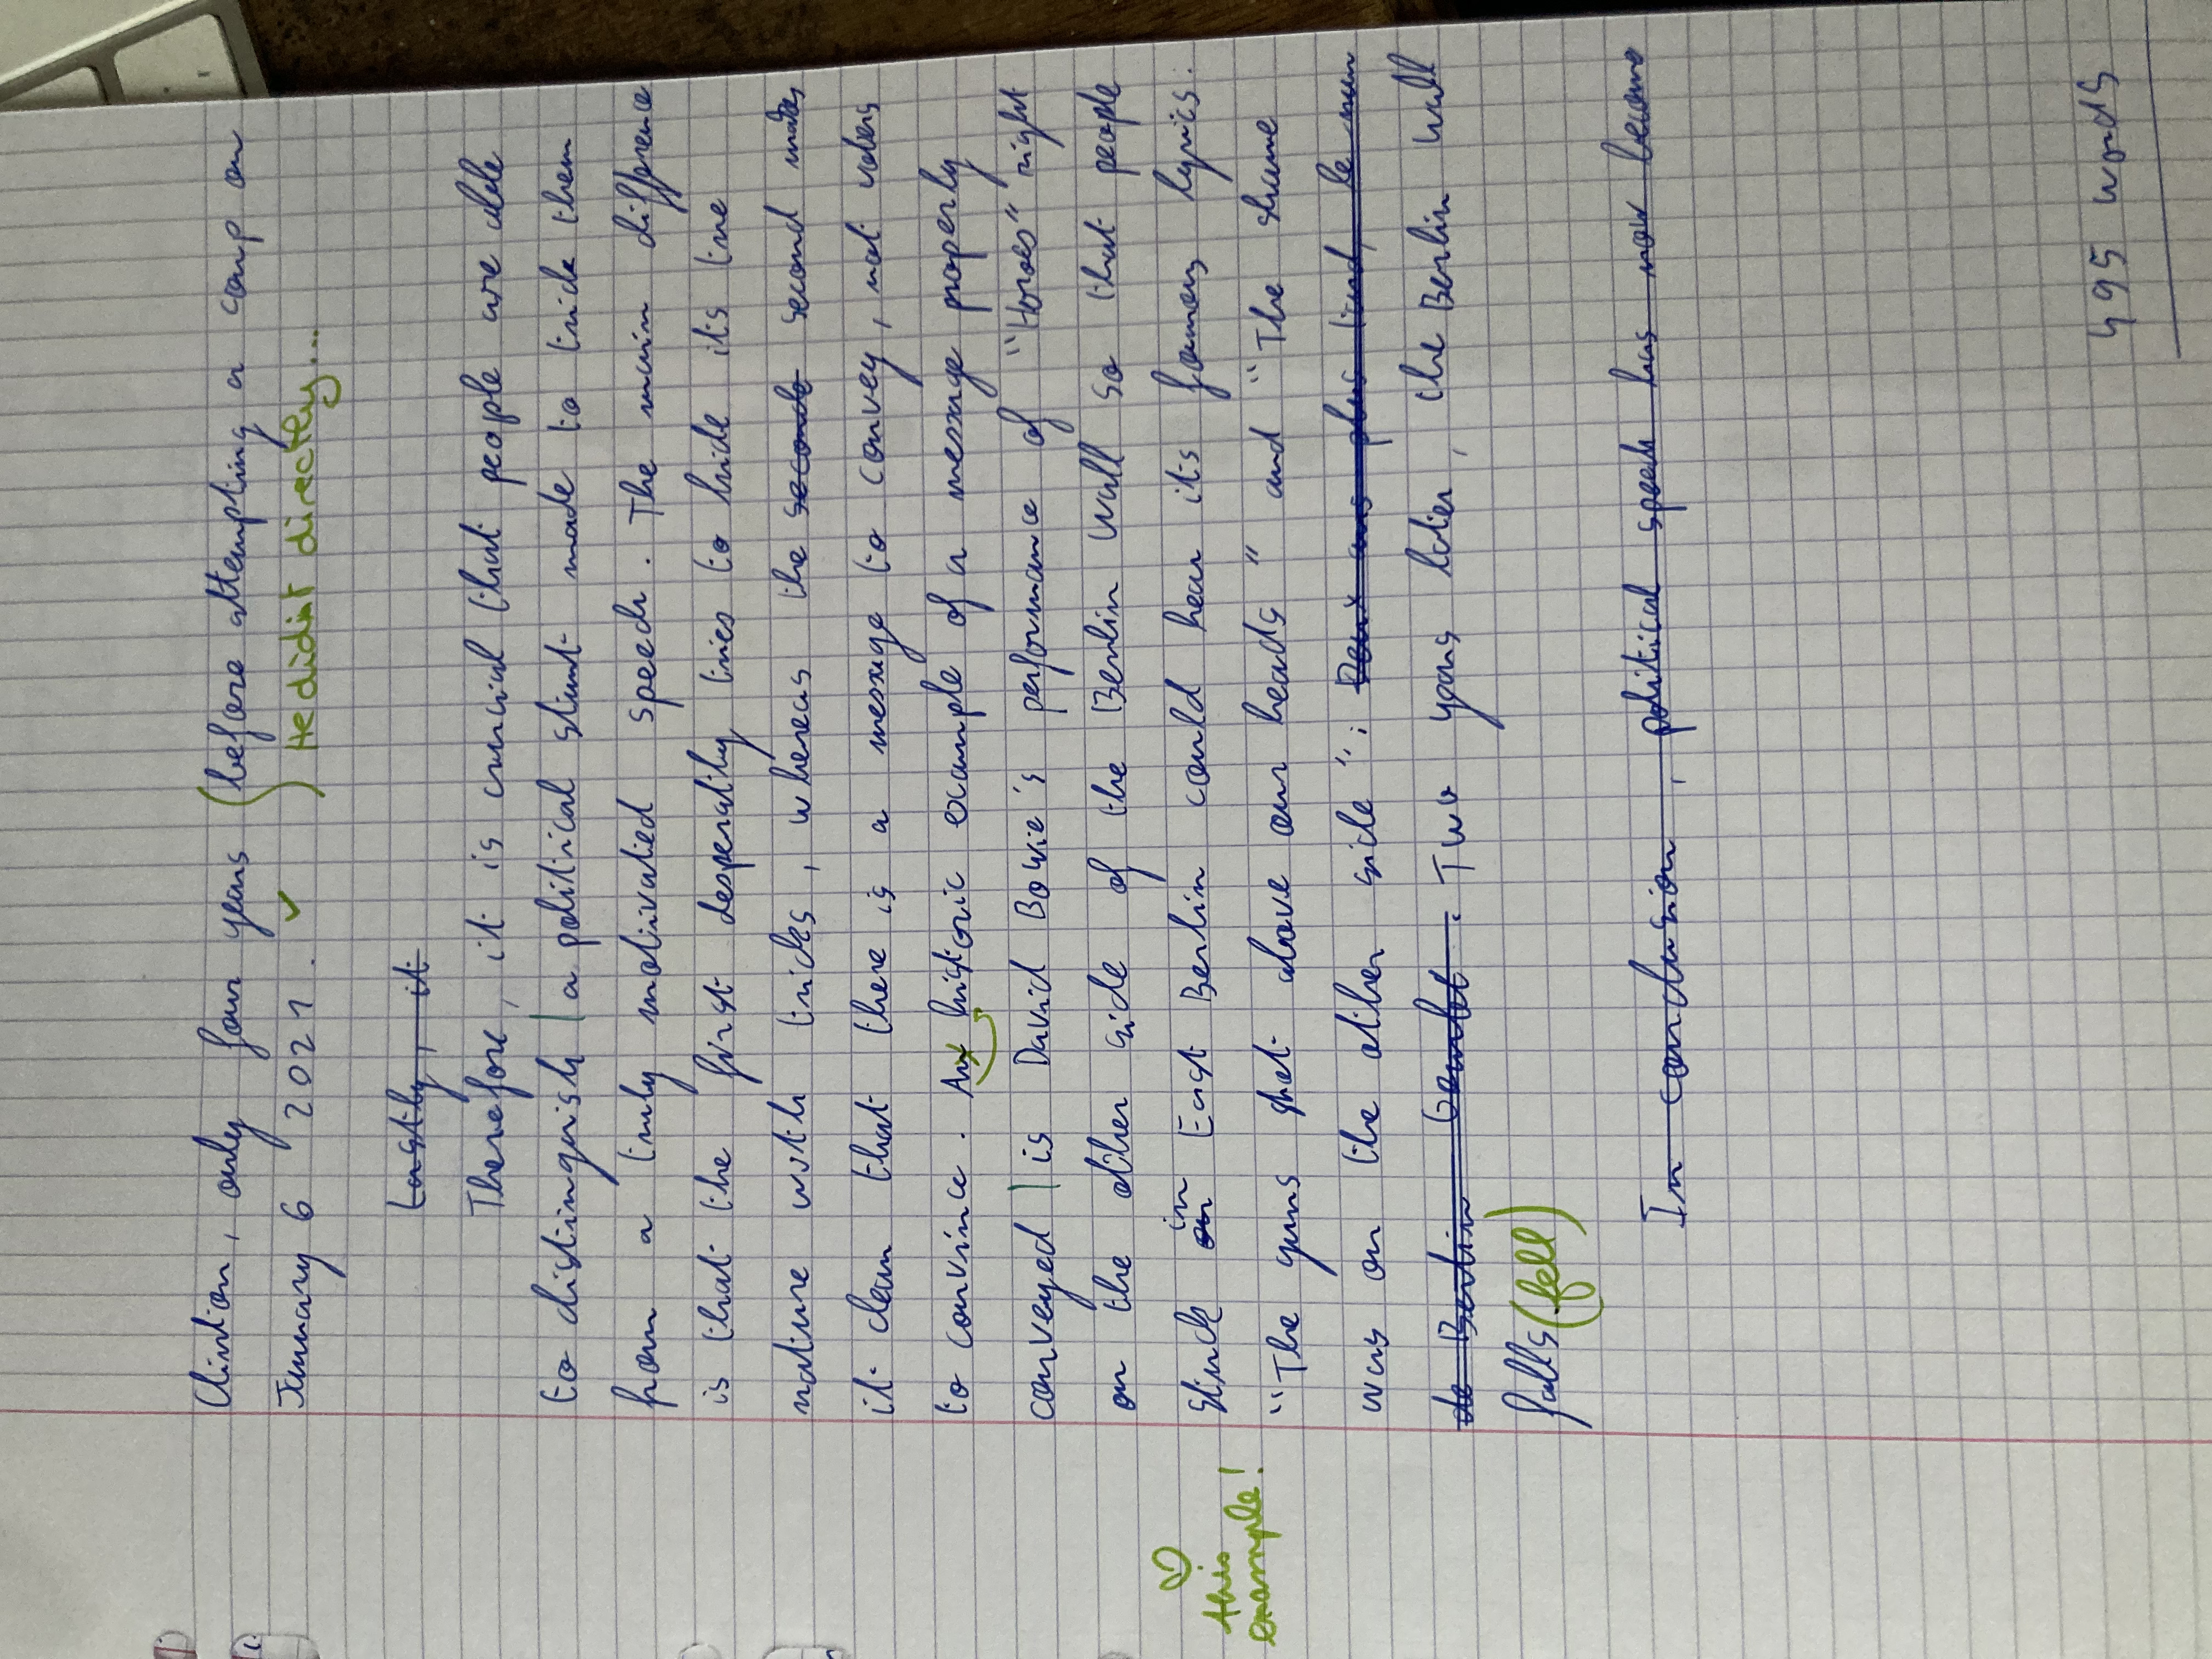 Clinton, only four years (before attempting a coup on
January 6 2021. ✓ ) He didn't directly...
Lastly, it
Therefore, it is crucial that people are able
to distinguish | a political stunt made to trick them
from a truly motivated speech. The main difference
is that the first desperatly tries to hide its true
nature with tricks, whereas the seconde second makes
it clear that there is a message to convey, not voters
to convince. An historic example of a message properly
conveyed | is David Bowie's performance of "Heroes" right
on the other side of the Berlin wall so that people
stuck on in East Berlin could hear its famous lyrics:
♡ this example!
"The guns shot above our heads" and "The shame
was on the other side". Deux ans plus tard, le mur
de Berlin tombet. Two years later, the Berlin Wall
falls (fell)
In conclusion, political speech has now become
495 words